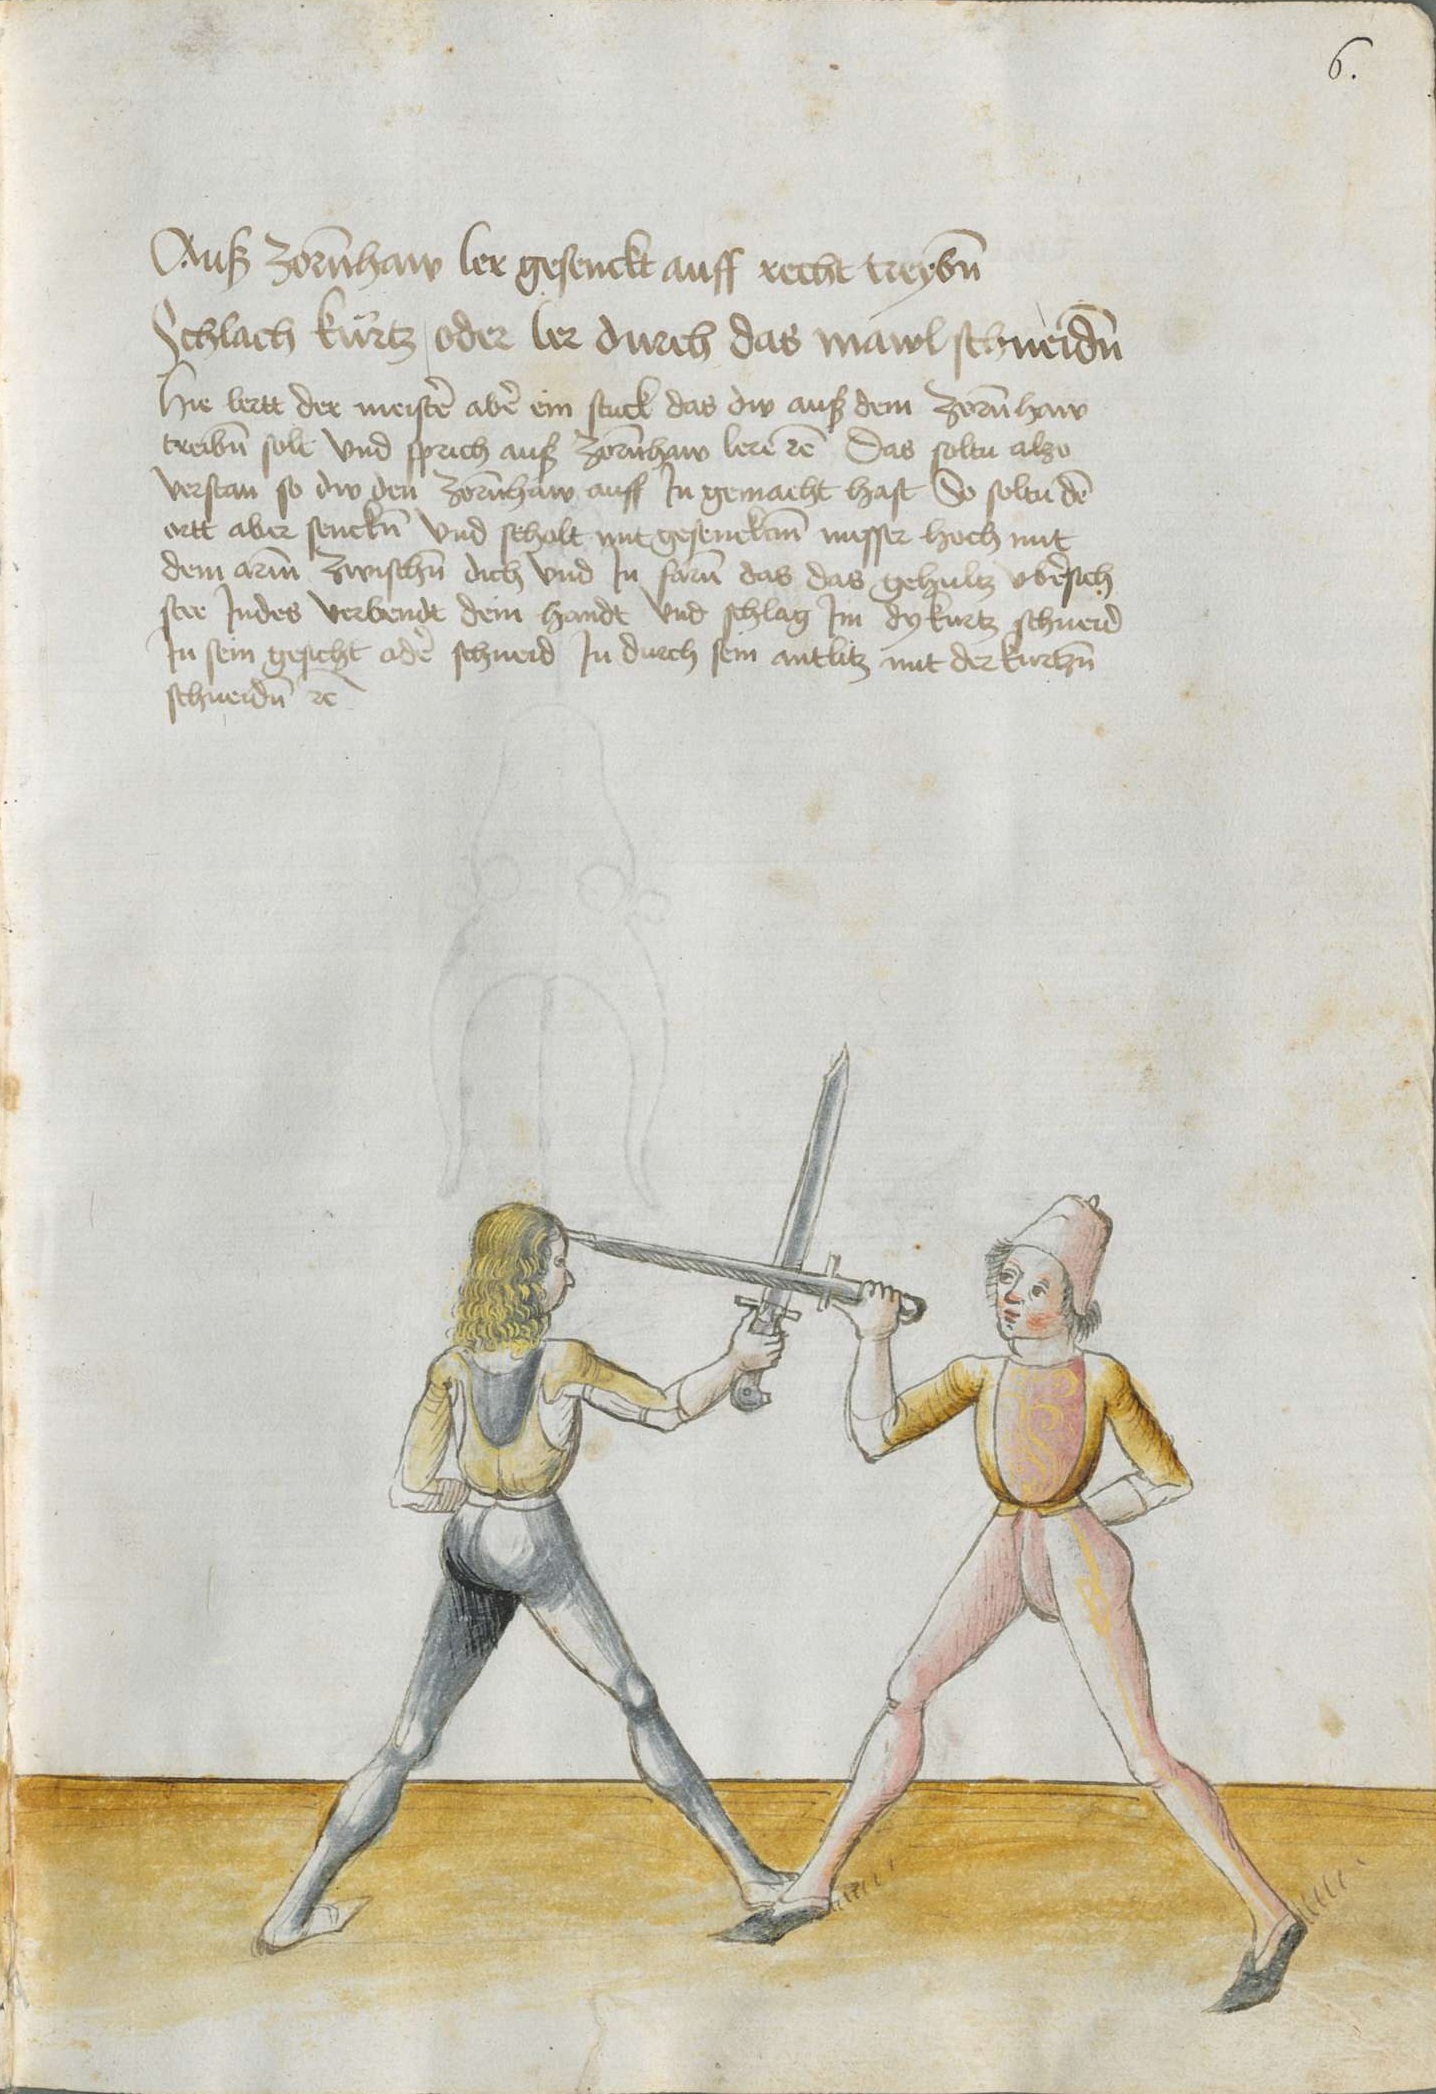 6.
Auß Zorñhaw ler gesenckt auff recht treybñ
Schlach kürtz oder ler durch das mawl schneidñ
Hie lertt der meistẽ abẽ ein stuck das dw auß dem Zorñ haw
treibñ solt Vnd sprich auß Zorñhaw lere rẽ Das soltu alzo
verstan so dw den Zorñhaw auff In gemacht hast So soltu dẽ
ortt aber senckñ Vnd scholt mit gesencktm̃ messer hoch mit
dem arm̃ Zwischñ dich vnd In farñ das das gehultz vbẽsich
stee Indes verwendt dein handt Vnd schlag Im dy kurtz schneid
In sein gesicht odẽ schneid In durch sein antlitz mit der kurtzñ
schneidñ rẽ